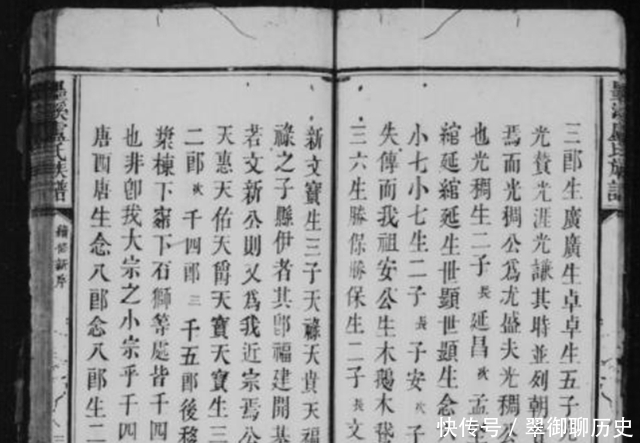 三郎生廣廣生卓卓生五子
光賛光涯光謙其時並列朝
焉而光稠公爲尤盛夫光稠
光稠生二子長延昌次孟
綰延綰延生世顯世顯生
小七小七生二子長子安次子
失傳而我祖安公生木鵝木
三六生勝保勝保生二子長文
新文寶生三子天祿天貴天
祿之子縣伊者其郎福建開基
若文新公則又爲我近宗焉公
天惠天佑天爵天寶天寶生
二郎次千四郎三千五郎後移
棠棟下窮下石獅等處皆千四
也非卽我大宗之小宗乎千四
唐四唐生念八郎念八郎生二
氏族譜
續修新序
快传号/翠御聊历史